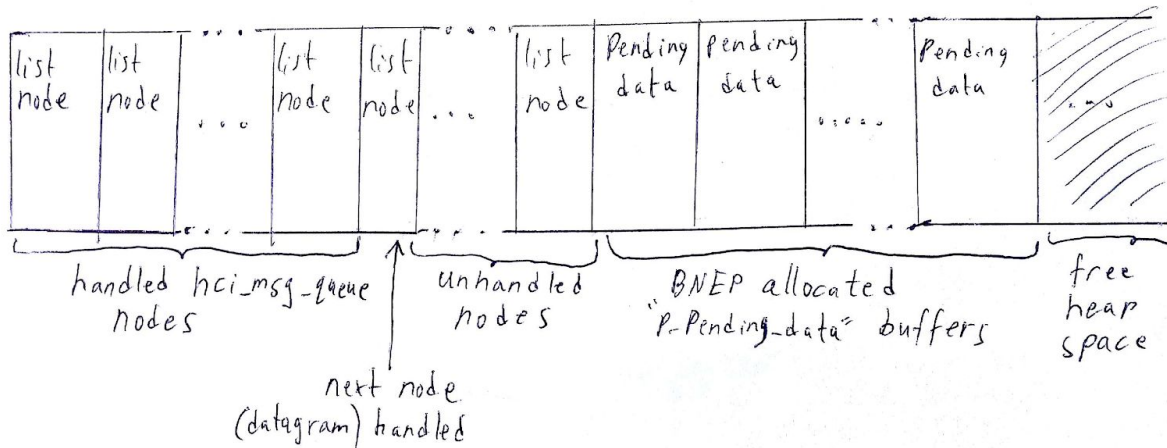 list node
list node
...
list node
list node
...
list node
Pending data
pending data
.....
Pending data
...
handled hci_msg_queue nodes
unhandled nodes
BNEP allocated "P_Pending_data" buffers
free heap space
next node (datagram) handled